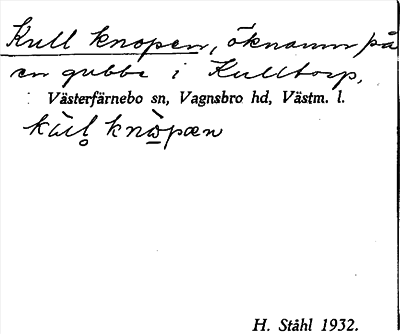 Kull knopen, öknamn på
en gubbe i Kulltorp,
Västerfärnebo sn, Vagnsbro hd, Västm. l.
knò̲pæn
H. Ståhl 1932.